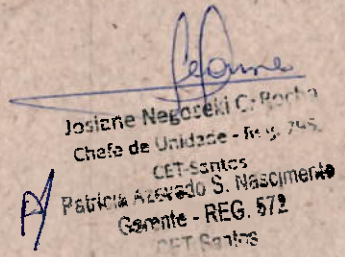 Josiane Negoseki C. Rocha
Chefe de Unidade - Reg. 795
CET-Santos
Patrícia Azevedo S. Nascimento
Gerente - REG. 572
CET-Santos